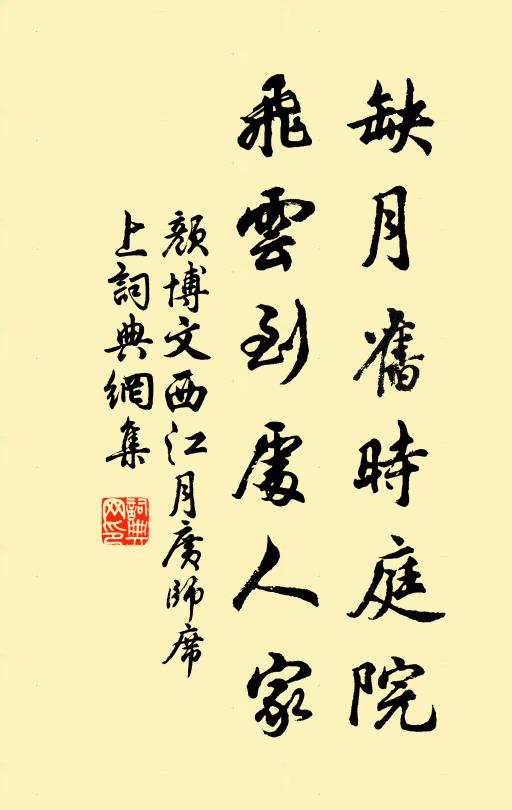 缺月舊時庭院
飛雲到處人家
顏博文西江月廣師席
上詞典網集
詞典
网印